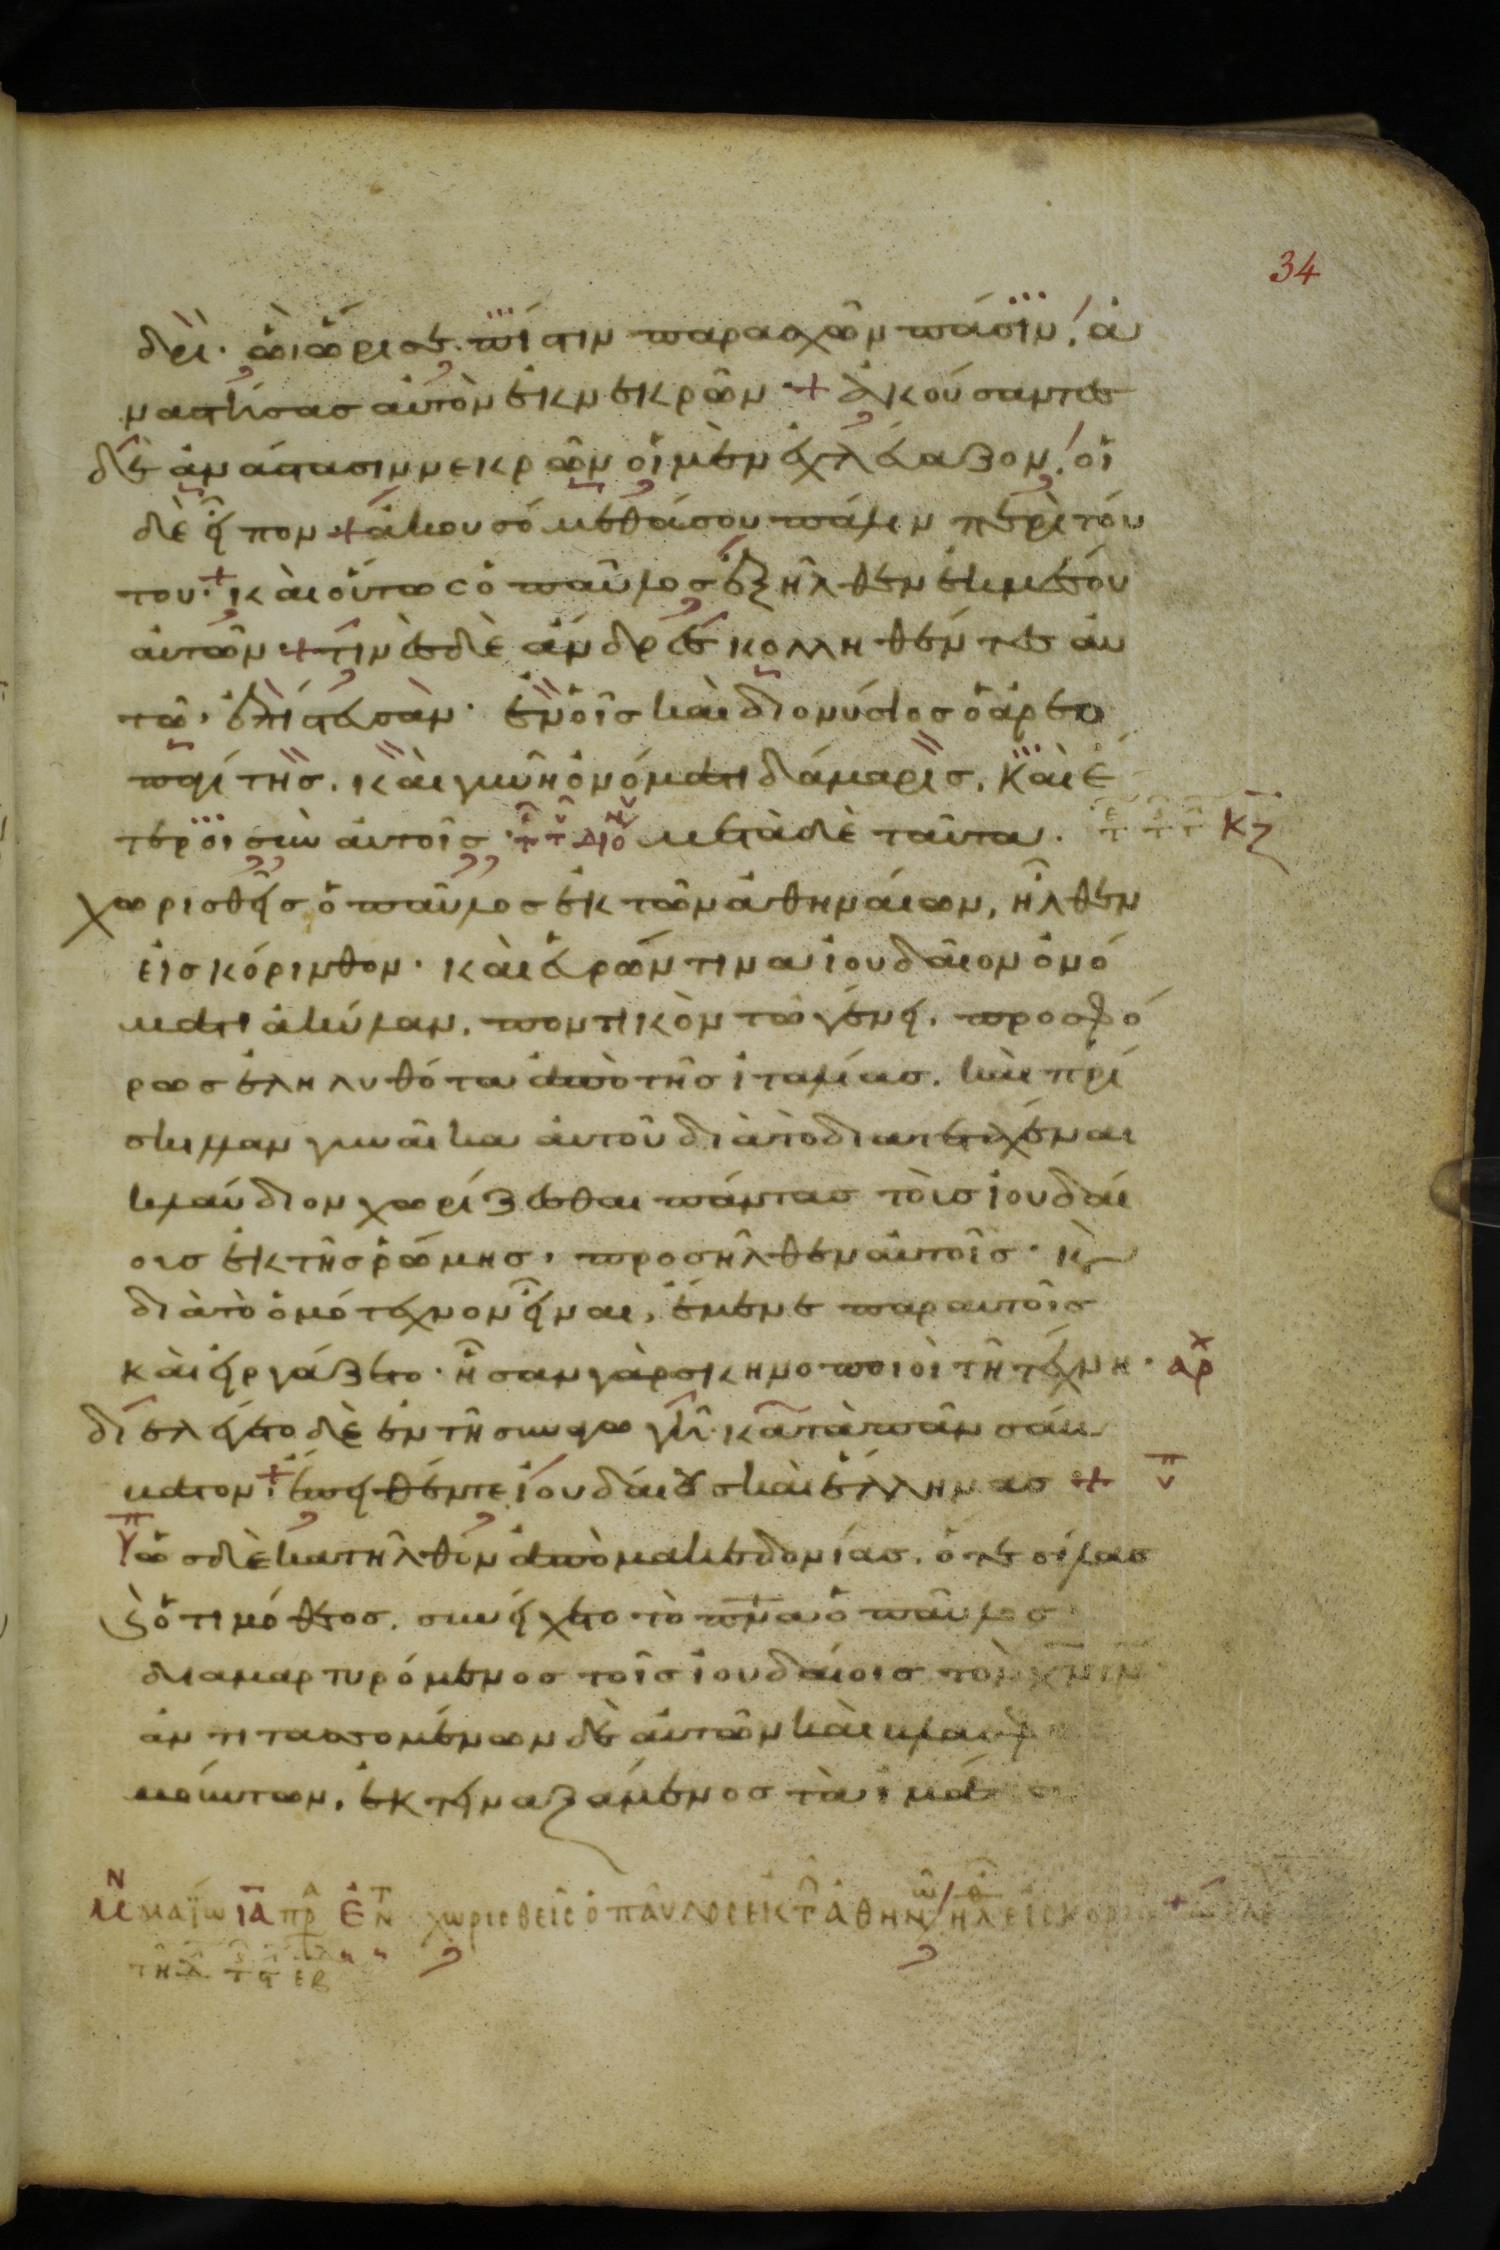 34
δρὶ· ὧ ὥρισε. πίστιν παρασχὼν πᾶσιν, ἀ
ναστήσας αὐτὸν ἐκ νεκρῶν + ἀκούσαντες
δὲ ἀνάστασιν νεκρῶν οἱ μὲν ἐχλέβαζον, οἱ
δὲ εἶπον + ἀκουσόμεθά σου πάλιν περὶ τού
του· + καὶ οὕτως ὁ παῦλος ἐξῆλθεν ἐκ μέσου
αὐτῶν + τινὲς δὲ ἄνδρες κολληθέντες αὐ
τῶ, ἐπίστευσαν· ἐν οἷς καὶ διονύσιος ὁ ἀρεο
παγίτης. καὶ γυνὴ ὀνόματι δάμαρις. καὶ ἕ
τεροι σὺν αὐτοῖς· μετὰ δὲ ταῦτα. κζ
χωρισθεὶς ὁ παῦλος ἐκ τῶν ἀθηναίων, ἦλθεν
εἰς κόρινθον· καὶ εὑρών τινα ἰουδαῖον ὀνό
ματι ἀκύλαν, ποντικὸν τῶ γένει, προσφά
τως ἐληλυθότα ἀπὸ τῆς ἰταλίας. καὶ πρί
σκιλλαν γυναῖκα αὐτοῦ διὰ τὸ διατεταχέναι
κλαύδιον χωρίζεσθαι πάντας τοὺς ἰουδαί
ους ἐκ τῆς ῥώμης, προσῆλθεν αὐτοῖς· κ
διὰ τὸ ὁμότεχνον εἶναι, ἔμενε παρ αὐτοῖς
καὶ εἰργάζετο· ἦσαν γὰρ σκηνοποιοὶ τῆ τέχνη· αρχ
διελέγετο δὲ ἐν τῆ συναγωγῆ κατὰ πᾶν σάβ
βατον. ἔπειθέν τε ἰουδαίους καὶ ἕλληνας +
ὡς δὲ κατῆλθον ἀπὸ μακεδονίας. ὅ τε σίλας
κ ὁ τιμόθεος. συνείχετο τῶ πνι ὁ παῦλος
διαμαρτυρόμενος τοῖς ἰουδαίοις τὸν χν ιν
ἀντιτασσομένων δὲ αὐτῶν καὶ βλασφ
μούντων. ἐκτιναξάμενος τὰ ἱμάτ
χωρισθεὶς ὁ παῦλος ἐκ τ ἀθην ἦλ εἰς